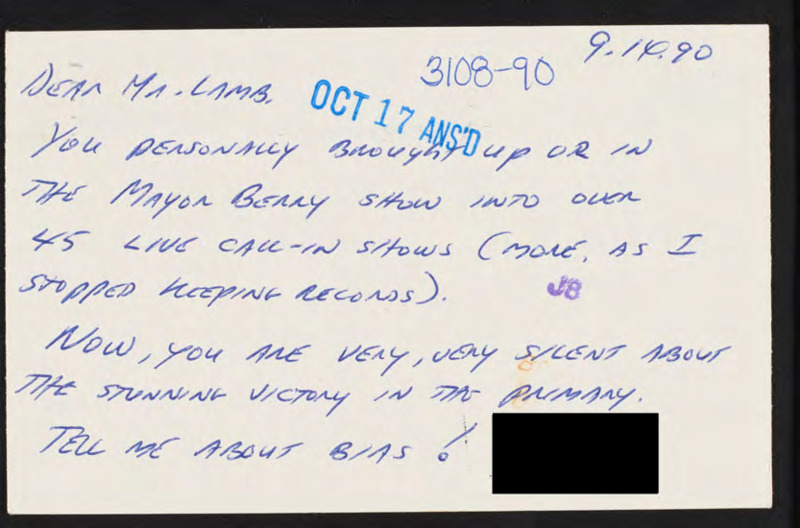 9.14.90
3108-90
DEAR MR. LAMB.
OCT 17 ANS'D
YOU PERSONALLY BROUGHT UP OR IN
THE MAYOR BERRY SHOW INTO OVER
45 LIVE CALL-IN SHOWS (MORE, AS I
STOPPED KEEPING RECORDS).
JB
NOW, YOU ARE VERY, VERY SILENT ABOUT
THE STUNNING VICTORY IN THE PRIMARY.
TELL ME ABOUT BIAS!